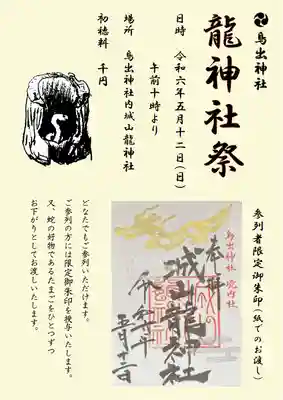 鳥出神社
龍神社祭
日時 令和六年五月十二日(日)
午前十時より
場所 鳥出神社内城山龍神社
初穂料 千円
参列者限定御朱印(紙でのお渡し)
奉拝
鳥出神社 境内社
城山龍神社
令和六年
五月十二日
どなたでもご参列いただけます。
ご参列の方には限定御朱印を授与いたします。
又、蛇の好物であるたまごをひとつずつ
お下がりとしてお渡しいたします。